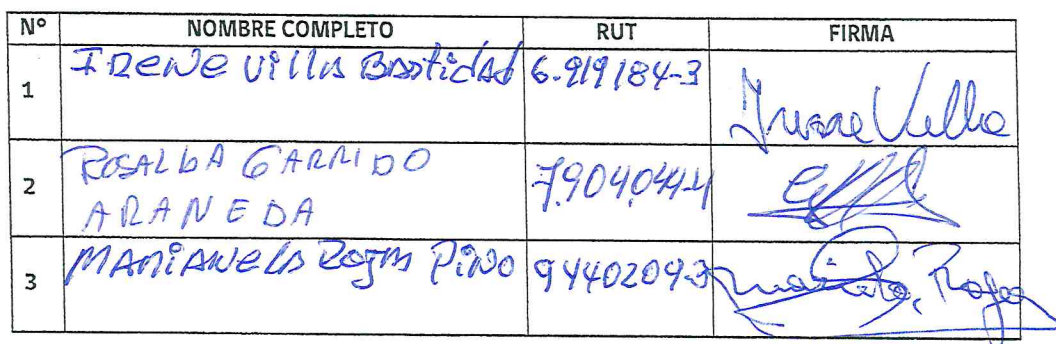 Nº NOMBRE COMPLETO RUT FIRMA
1 IRENE Villa Bastidas 6.919184-3 Irene Villa
2 ROSALBA GARRIDO ARANEDA 7.904044-4
3 MARIANELA ROJAS PINO 94402093 Rojas